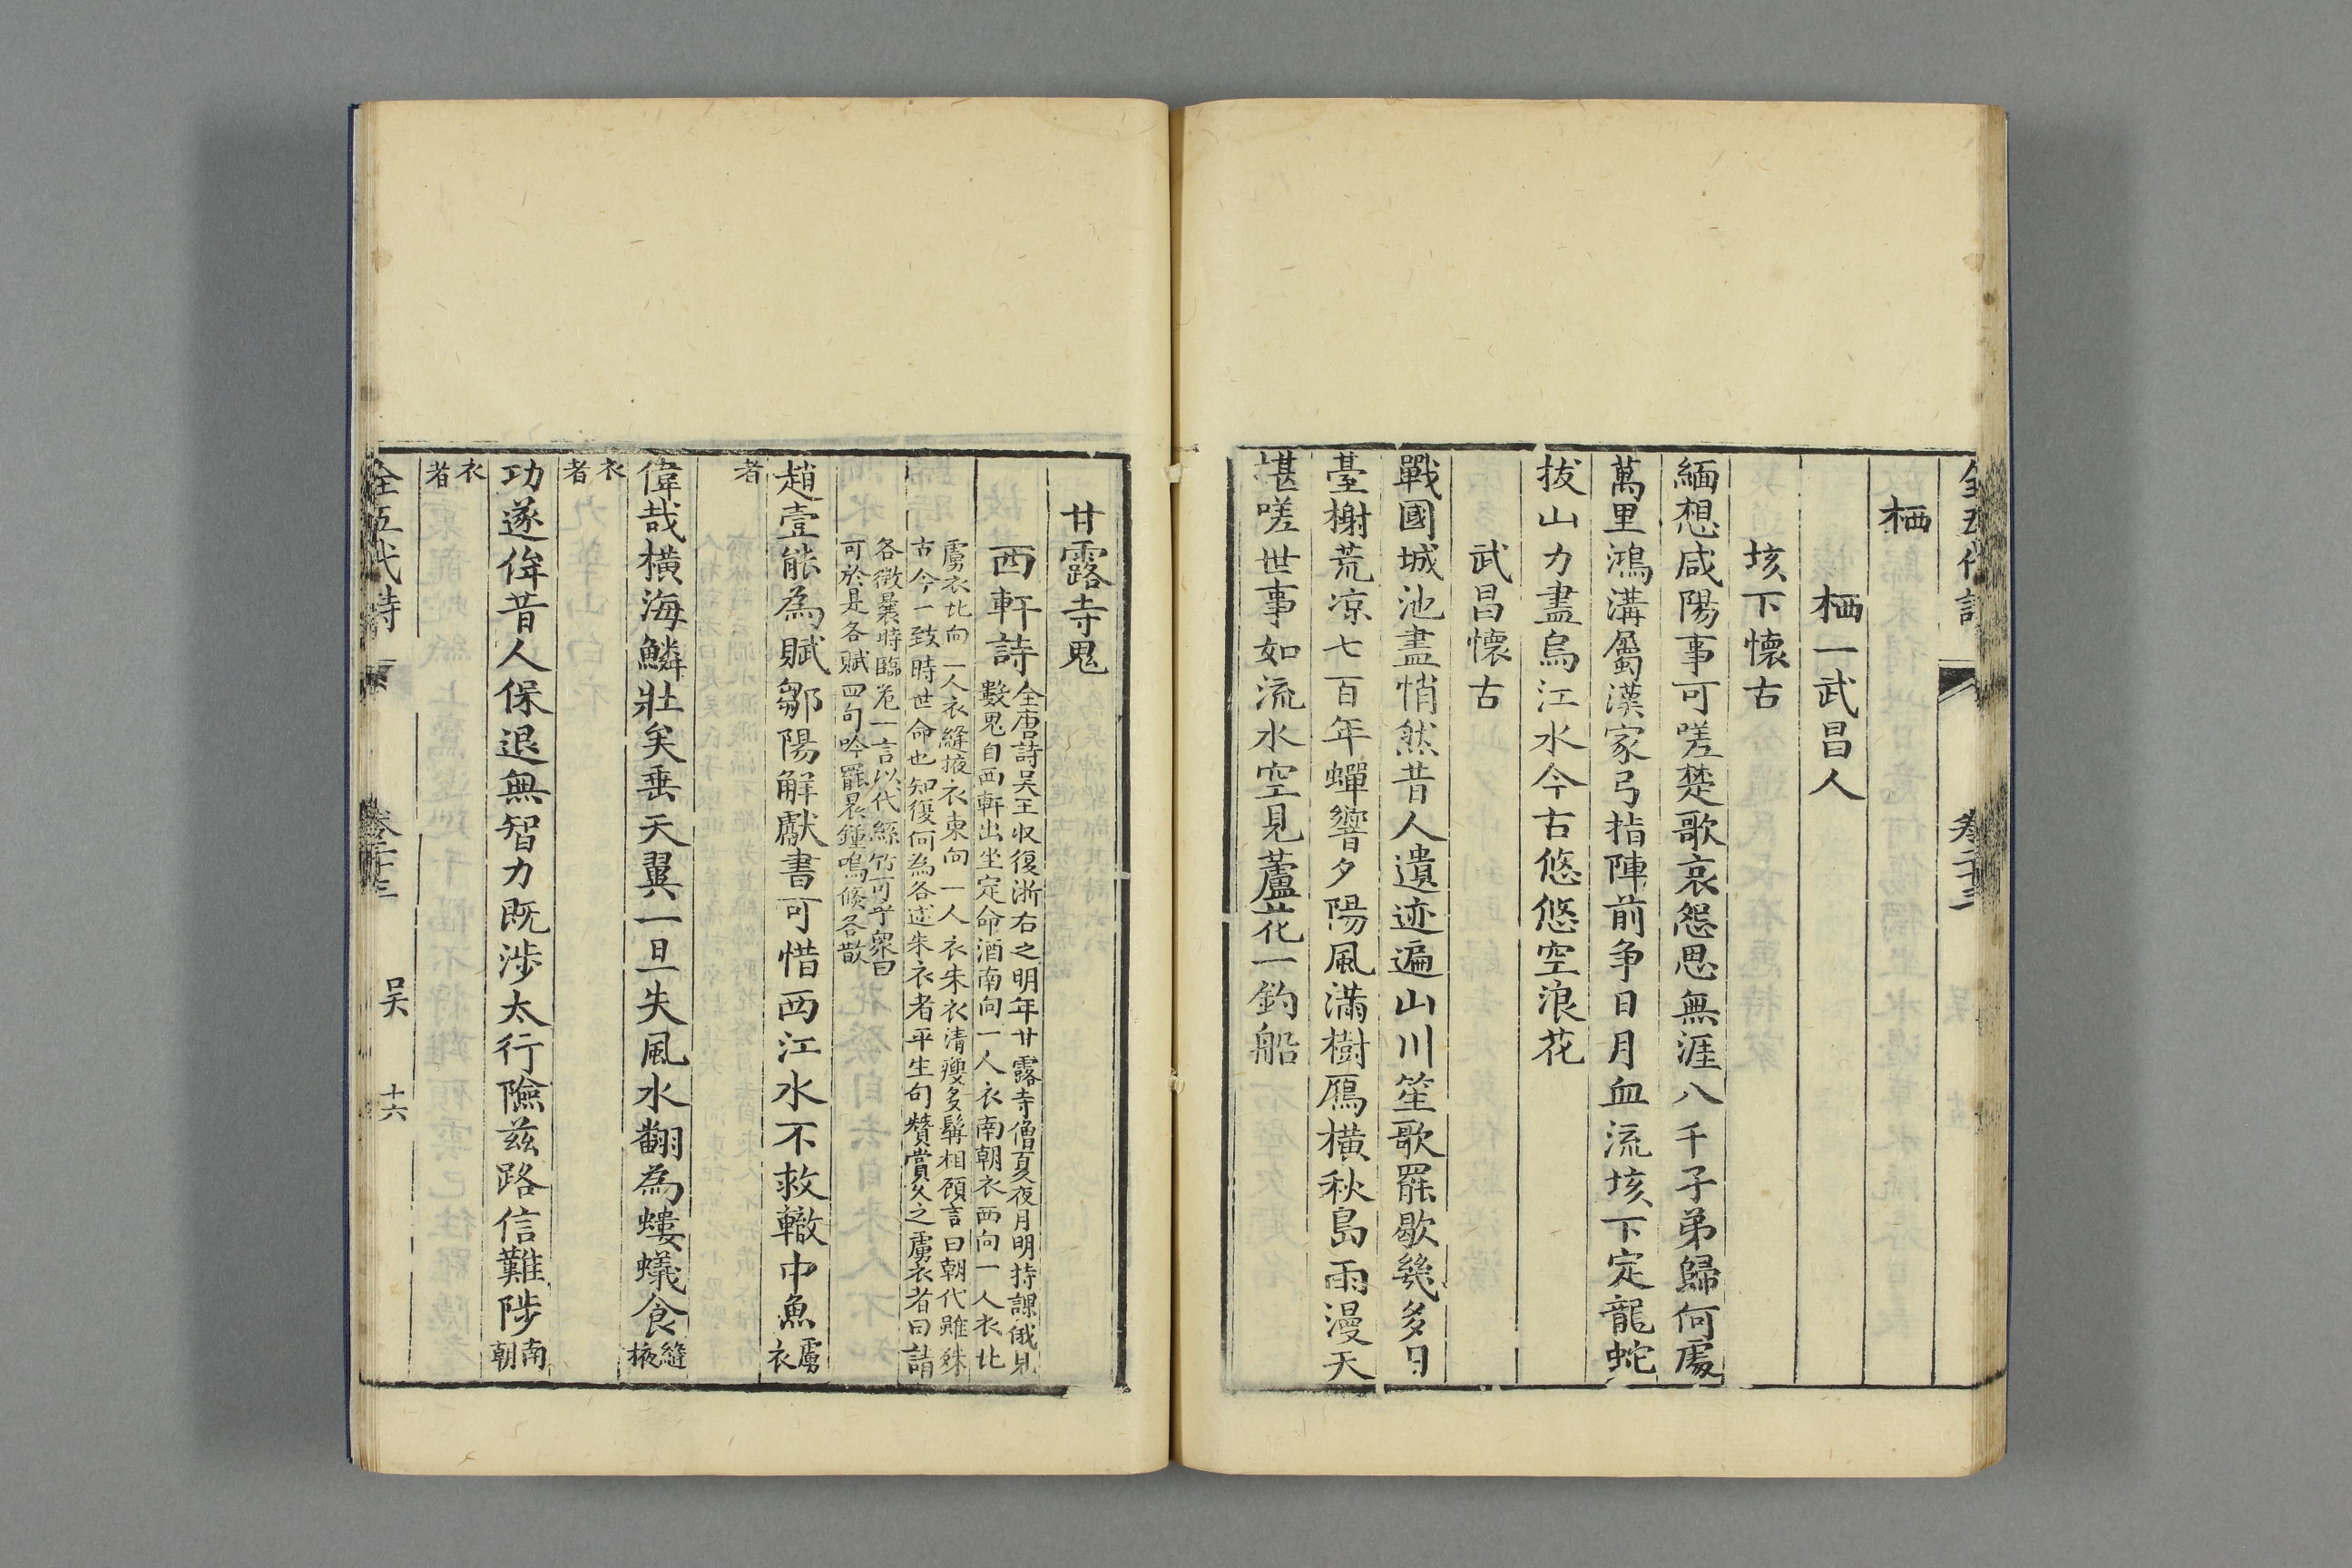 全五代詩 卷二十三
栖一
栖一武昌人
垓下懷古
緬想咸陽事可嗟楚歌哀怨思無涯八千子弟歸何處
萬里鴻溝屬漢家弓指陣前争日月血流垓下定龍蛇
拔山力盡烏江水今古悠悠空浪花
武昌懷古
戰國城池盡悄然昔人遺迹遍山川笙歌罷歇幾多日
臺榭荒凉七百年蟬響夕陽風滿樹鴈橫秋島雨漫天
堪嗟世事如流水空見蘆花一釣船
甘露寺鬼
西軒詩全唐詩吴王收復浙右之明年甘露寺僧夏夜月明持課俄見
數鬼自西軒出坐定命酒南向一人衣南朝衣西向一人衣北
虜衣北向一人衣縫掖衣東向一人衣朱衣清瘦多髯相顧言曰朝代雖殊
古今一致時世命也知復何為各述朱衣者平生句贊賞久之虜衣者曰請
各徵曩時臨危一言以代絲竹可乎衆曰
可於是各賦四句吟罷晨鍾鳴倏各散
趙壹能為賦鄒陽解獻書可惜西江水不救轍中魚虜衣
者
偉哉橫海鱗壯矣垂天翼一旦失風水翻為螻蟻食縫掖
衣者
功遂侔昔人保退無智力既涉太行險兹路信難陟南朝
衣者
全五代詩 卷二十三 吴 十六